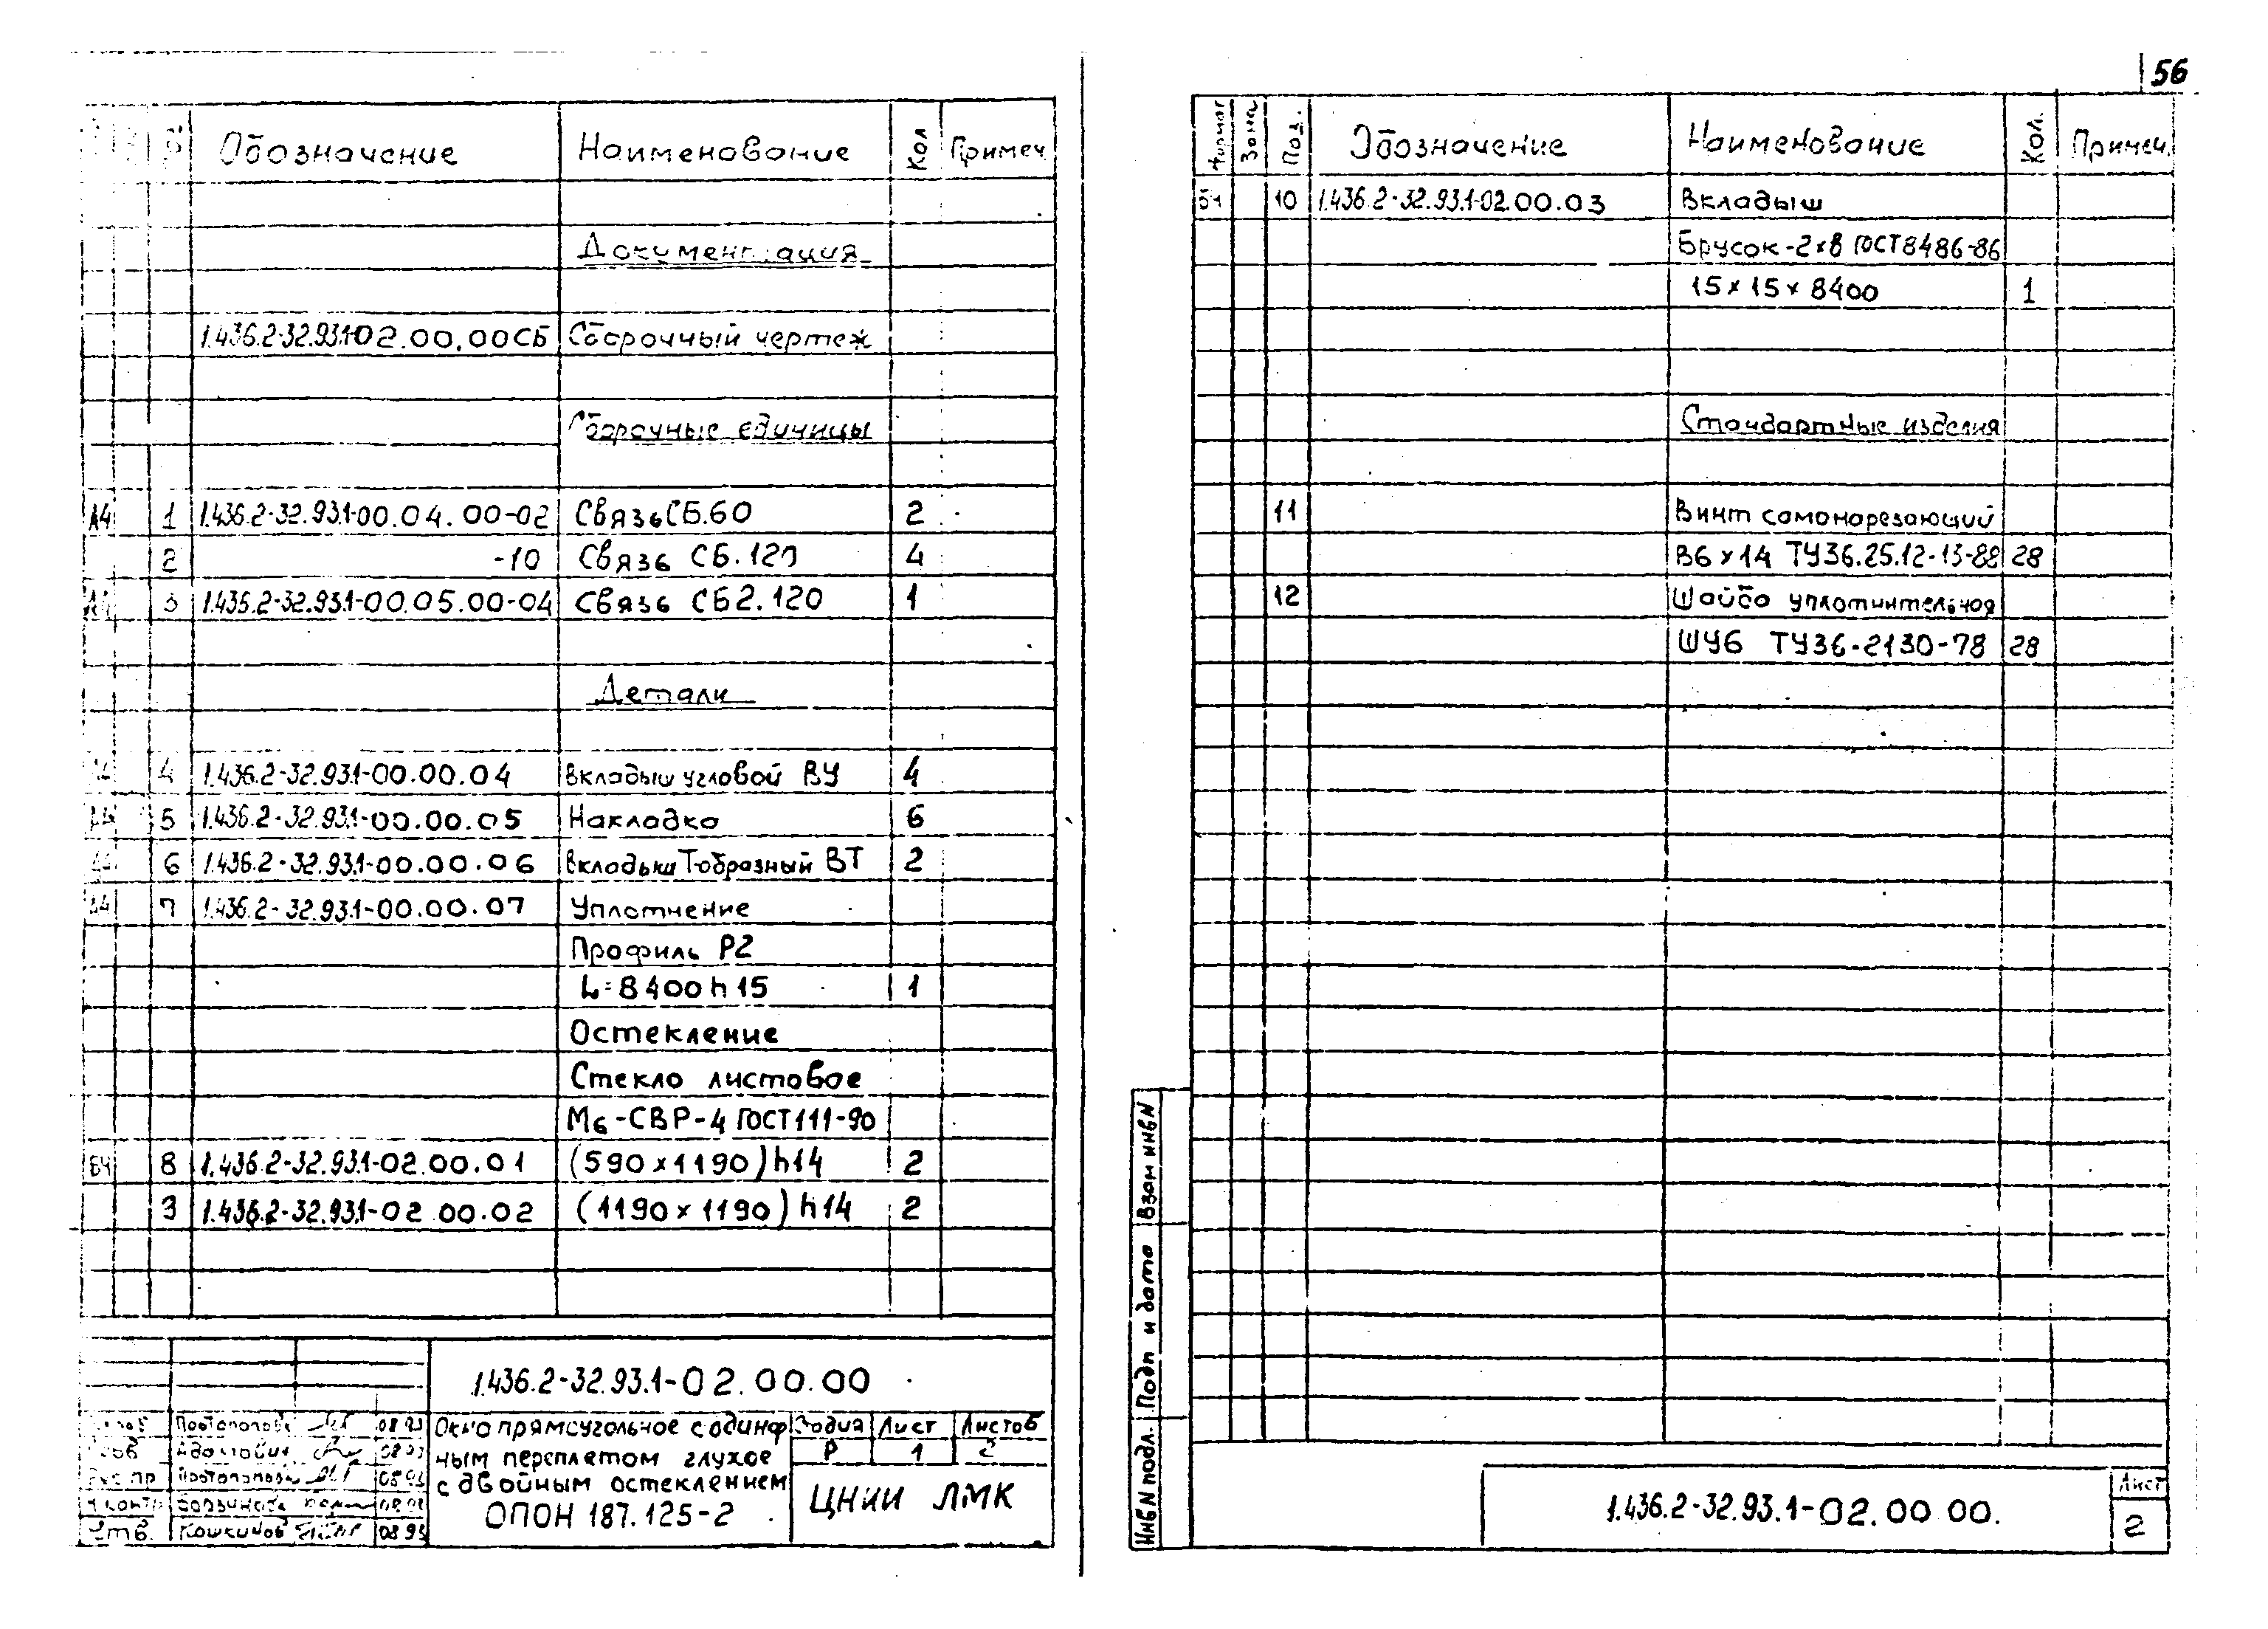 56
Обозначение Наименование Кол Примеч.
Документация
1.436.2-32.93.1-02.00.00СБ Сборочный чертеж
Сборочные единицы
А4 1 1.436.2-32.93.1-00.04.00-02 Связь СБ.60 2
2 -10 Связь СБ.120 4
А4 3 1.436.2-32.93.1-00.05.00-04 Связь СБ2.120 1
Детали
А4 4 1.436.2-32.93.1-00.00.04 Вкладыш угловой ВУ 4
А4 5 1.436.2-32.93.1-00.00.05 Накладка 6
А4 6 1.436.2-32.93.1-00.00.06 Вкладыш Т-образный ВТ 2
А4 7 1.436.2-32.93.1-00.00.07 Уплотнение
Профиль Р2
L=8400 h15 1
Остекление
Стекло листовое
М6-СВР-4 ГОСТ 111-90
БЧ 8 1.436.2-32.93.1-02.00.01 (590×1190)h14 2
9 1.436.2-32.93.1-02.00.02 (1190×1190)h14 2
1.436.2-32.93.1-02.00.00
Протопопова 08.93
08.93
Протопопова 08.93
Н.контр 08.93
Утв. Кошкинов 08.93
Окно прямоугольное с одинар
ным переплетом глухое
с двойным остеклением
ОПОН 187.125-2
Стадия Лист Листов
Р 1 2
ЦНИИ ЛМК
Формат Зона Поз. Обозначение Наименование Кол. Примеч.
БЧ 10 1.436.2-32.93.1-02.00.03 Вкладыш
Брусок-2×8 ГОСТ8486-86
15×15×8400 1
Стандартные изделия
11 Винт самонарезающий
В6×14 ТУ36.25.12-13-88 28
12 Шайба уплотнительная
ШУ6 ТУ36-2130-78 28
Инв N подл. Подп и дата Взам инв N
1.436.2-32.93.1-02.00 00.
Лист
2